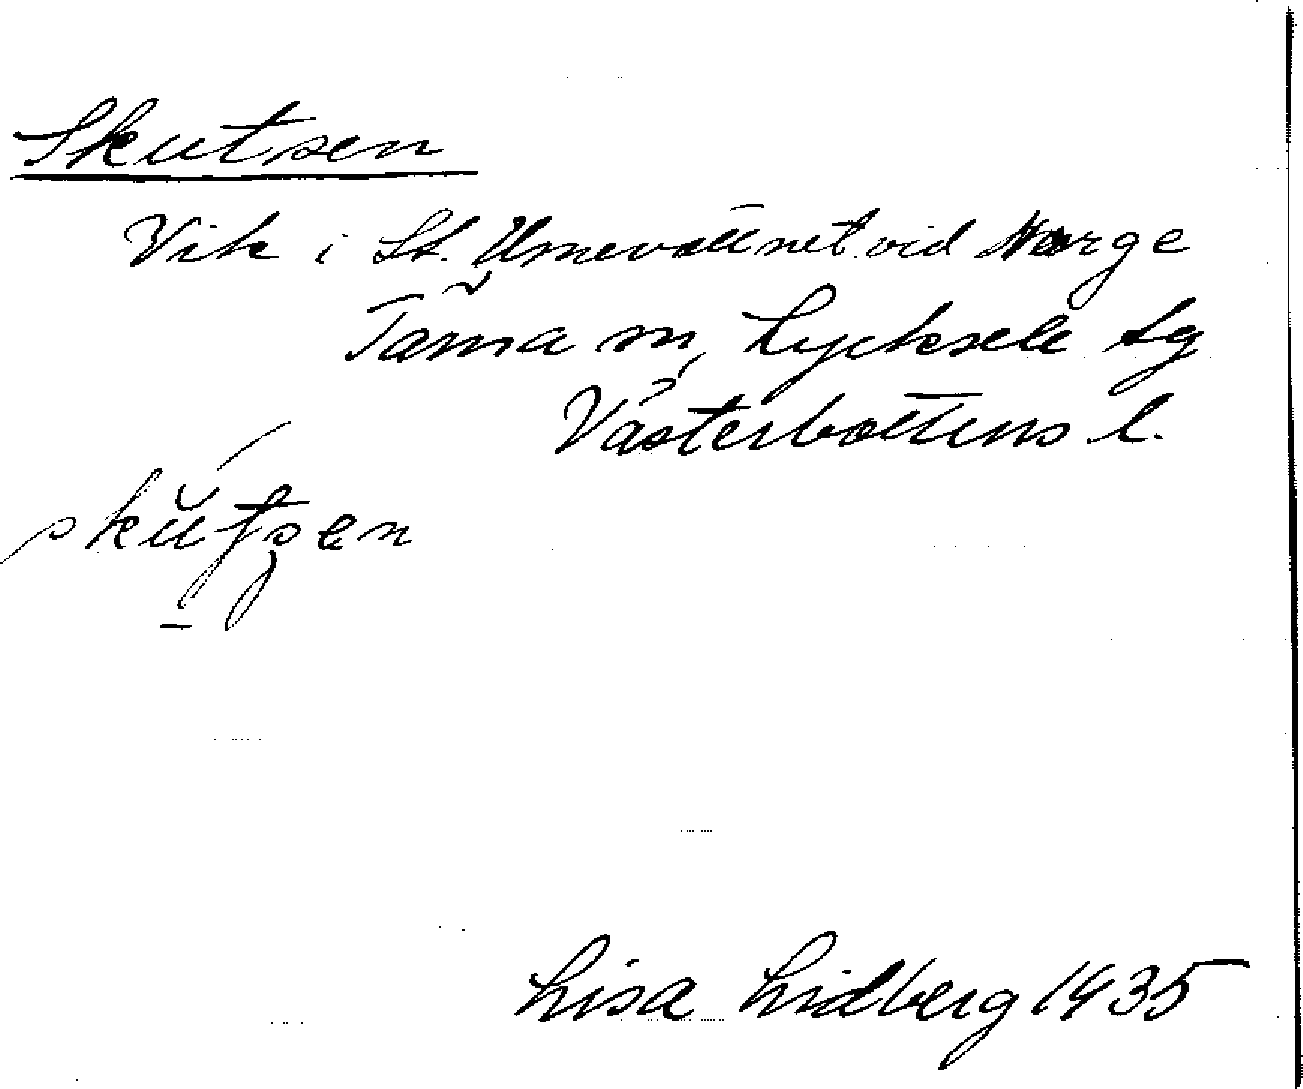 Skutsen
Vik i St. Umevattnet vid Norge
Tärna sn, Lycksele lg
Västerbottens l.
skŭtsen
Lisa Lidberg 1935